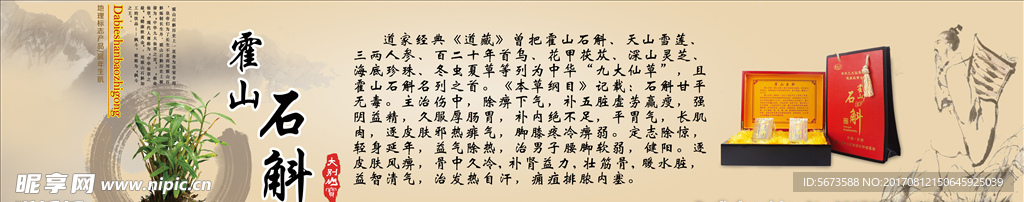 地理标志产品 延年生肌
Dabieshanbaozhigong
霍山
石斛
大别山宝
道家经典《道藏》曾把霍山石斛、天山雪莲、
三两人参、百二十年首乌、花甲茯苓、深山灵芝、
海底珍珠、冬虫夏草等列为中华“九大仙草”，且
霍山石斛名列之首。《本草纲目》记载：石斛甘平
无毒。主治伤中，除痹下气，补五脏虚劳羸瘦，强
阴益精，久服厚肠胃，补内绝不足，平胃气，长肌
肉，逐皮肤邪热痱气，脚膝疼冷痹弱。定志除惊，
轻身延年，益气除热，治男子腰脚软弱，健阳。逐
皮肤风痹，骨中久冷、补肾益力、壮筋骨、暖水脏，
益智清气，治发热自汗，痈疽排脓内塞。
霍山
石斛
昵享网 www.nipic.cn
ID:5673588 NO:20170812150645925039